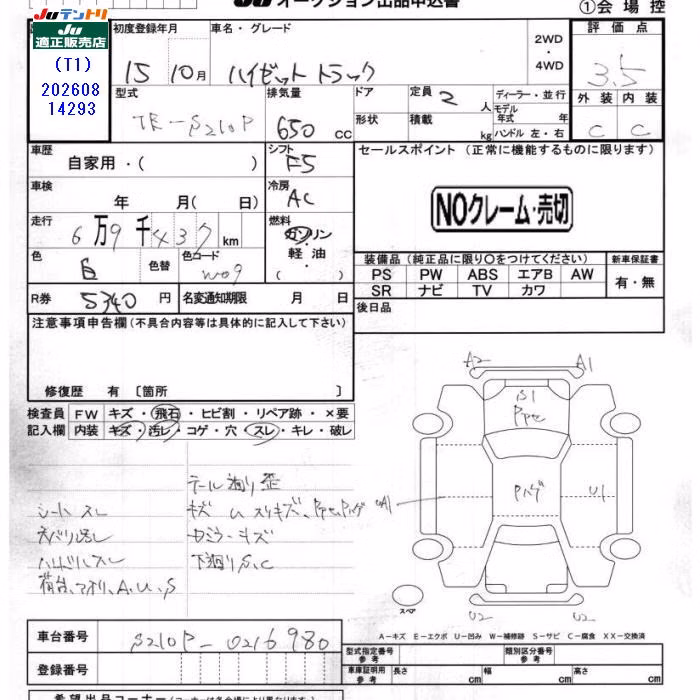 Juテントリ
Ju
適正販売店
(T1)
202608
14293
Ju オークション出品申込書
①会場控
初度登録年月 車名・グレード 2WD ・ 4WD 評価点
15 10月 ハイゼットトラック 3.5
型式 排気量 ドア 定員 2 人 ディーラー・並行 外装 内装
TE-S210P 650 cc 形状 積載 kg モデル年式 年 ハンドル 左・右 C C
車歴 自家用・( ) シフト F5 セールスポイント (正常に機能するものに限ります)
車検 年 月( 日) 冷房 AC
NOクレーム・売切
走行 6万9千437km 燃料 ガソリン・軽油・( )
装備品 (純正品に限り○をつけてください) 新車保証書
色 白 色替 色コード W09
PS PW ABS エアB AW 有・無
SR ナビ TV カワ
R券 5340 円 名変通知期限 月 日 後日品
注意事項申告欄(不具合内容等は具体的に記入して下さい)
修復歴 有 〔箇所 〕
検査員 FW キズ・飛石・ヒビ割・リペア跡・×要
記入欄 内装 キズ・汚レ・コゲ・穴・スレ・キレ・破レ
シートスレ
ハンドルスレ
荷台、アオリ、A、U、S
キズ
下廻りS、C
A2 A1
S1
U1
U2 U2
スペア
A-キズ E-エクボ U-凹み W-補修跡 S-サビ C-腐食 XX-交換済
車台番号 S210P-0216980
登録番号
型式指定番号 参考 類別区分番号 参考
車庫証明用 参考 長さ cm 幅 cm 高さ cm
希望出品コーナー